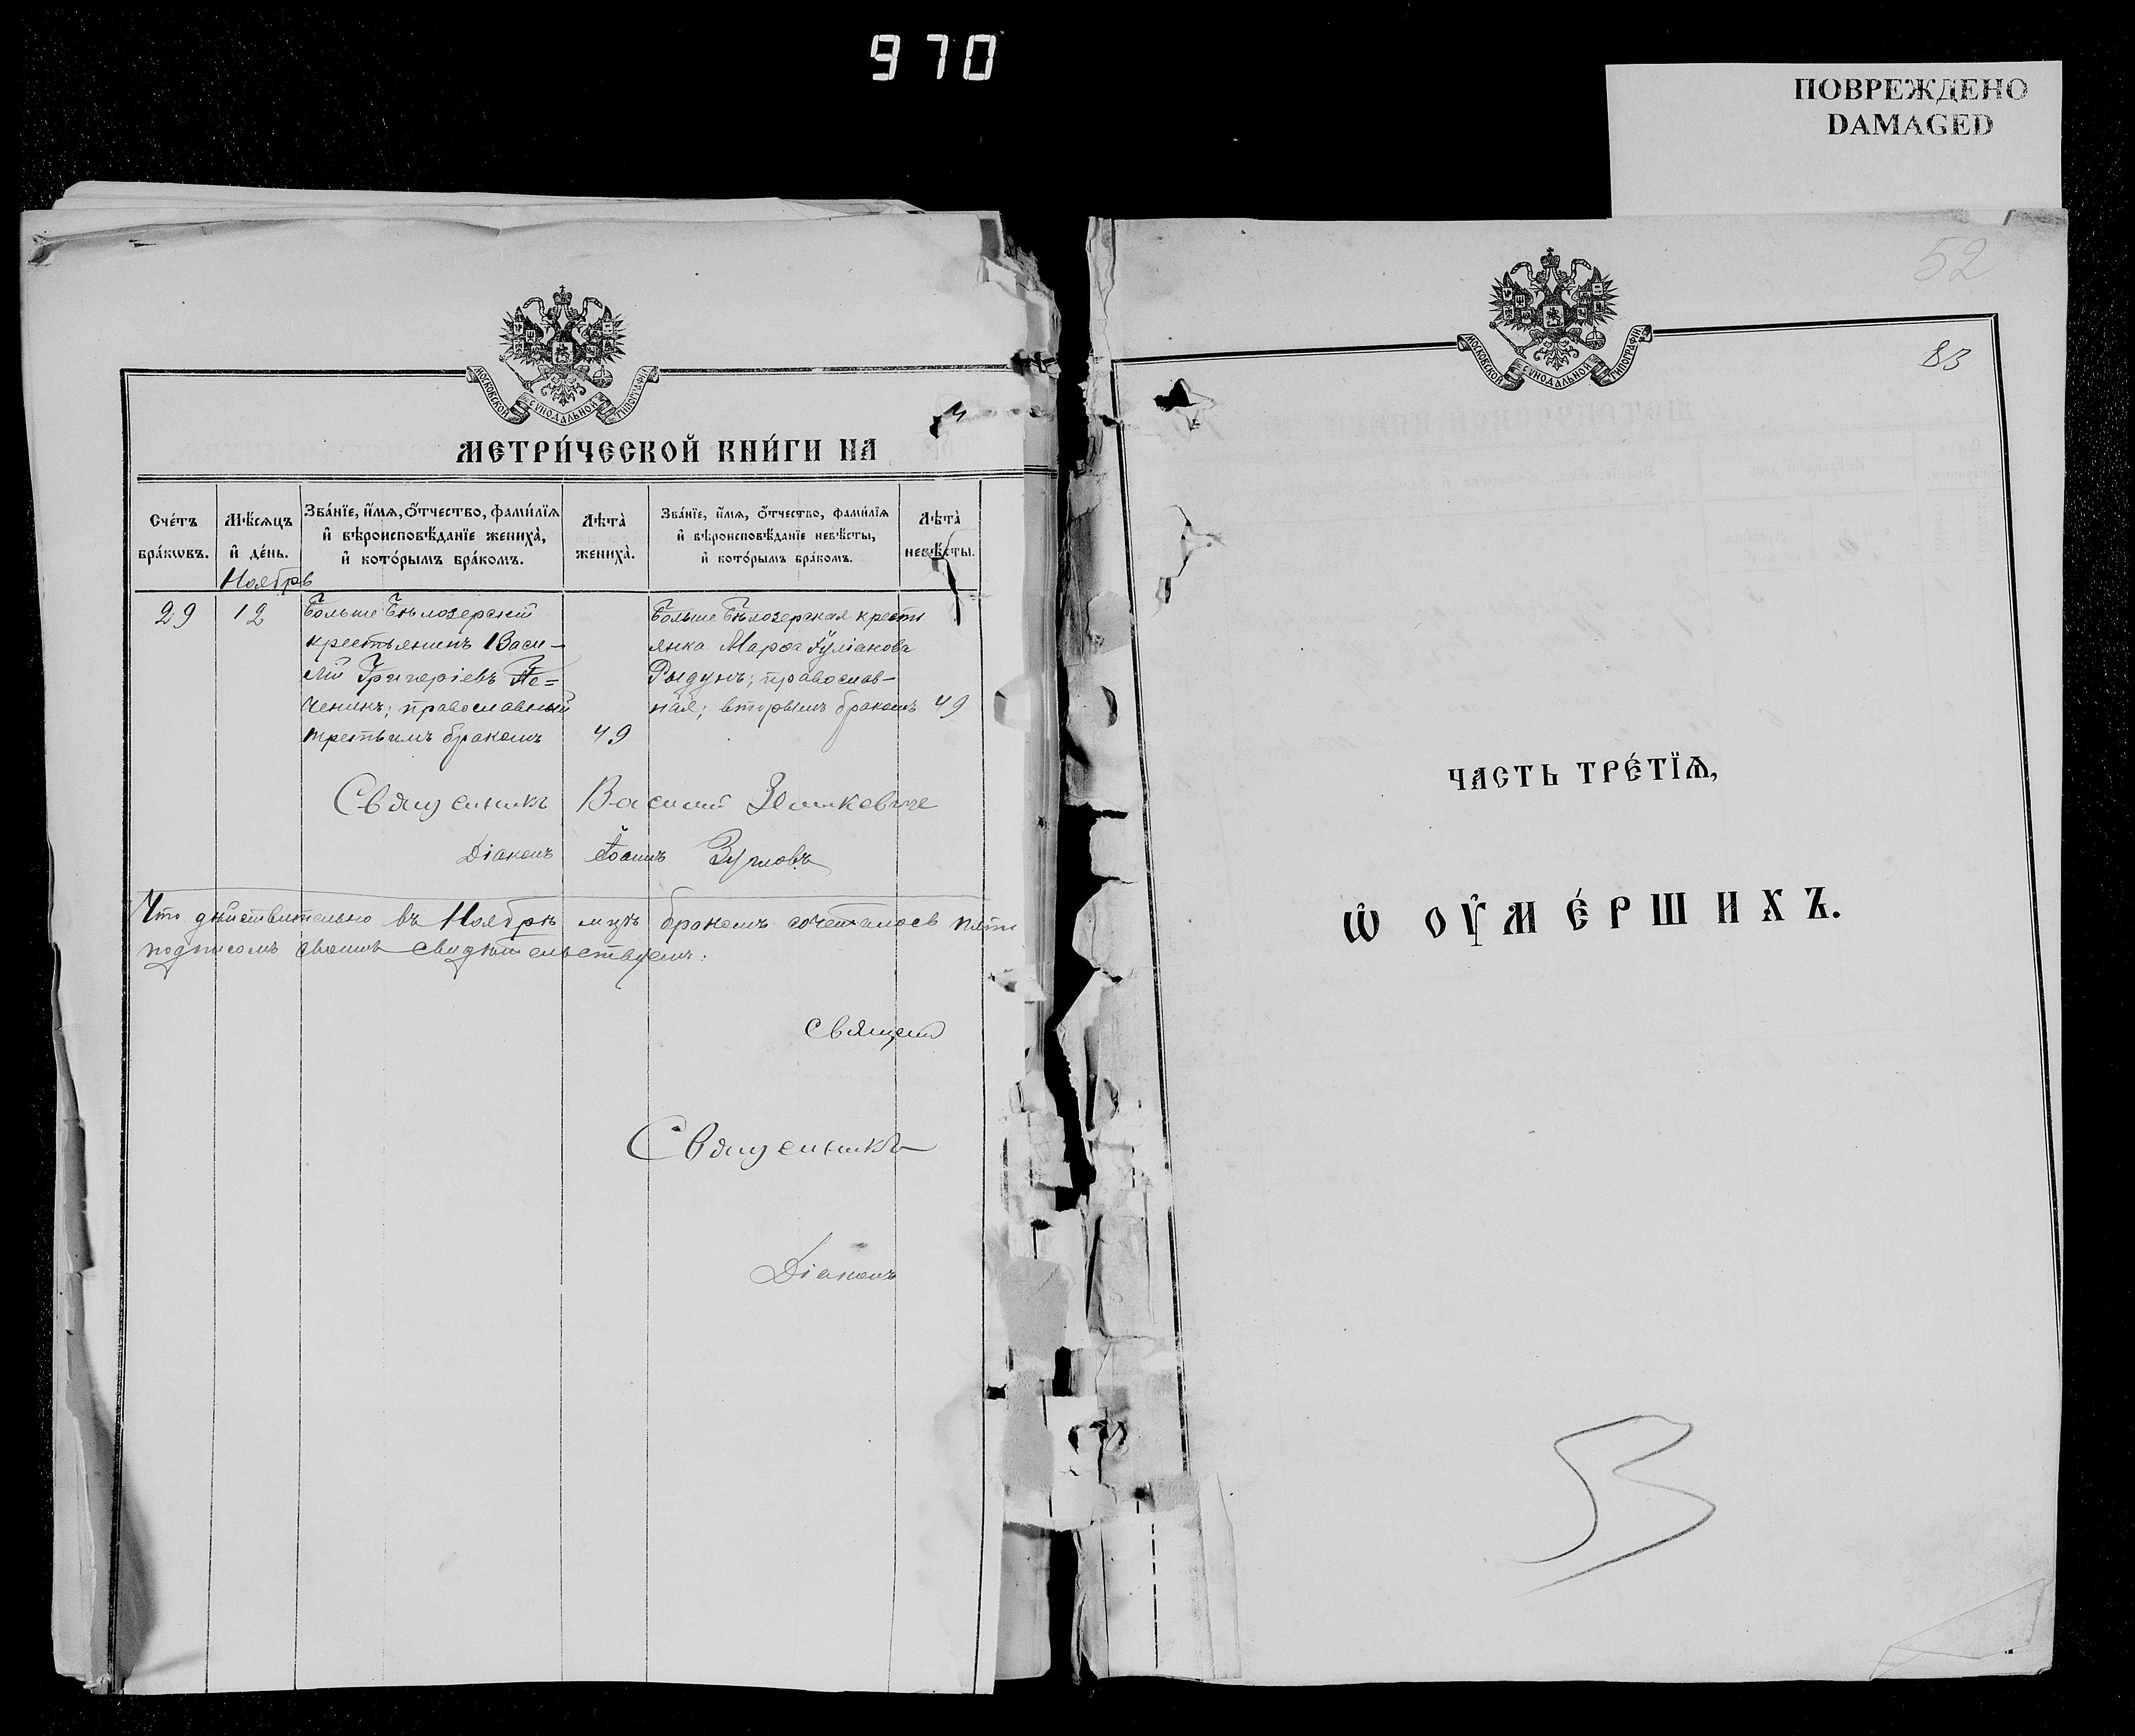 970
ПОВРЕЖДЕНО
DAMAGED
МОСКОВСКОЙ СѴНОДАЛЬНОЙ ТИПОГРАФІИ
МЕТРИ́ЧЕСКОЙ КНИ́ГИ НА
Сче́тъ бра́кωвъ.
Мѣ́сяцъ и҆ де́нь.
Зва́нїе, и҆́мя, ѻ҆́тчество, фами́лїя
и҆ вѣроисповѣ́данїе жениха̀,
и҆ кото́рымъ бра́комъ.
Лѣта̀ жениха̀.
Зва́нїе, и҆́мя, ѻ҆́тчество, фами́лїя
и҆ вѣроисповѣ́данїе невѣ́сты,
и҆ кото́рымъ бра́комъ.
Лѣта̀ невѣ́сты.
Ноябрь
29
12
Больше Бѣлозерскій
крестьянинъ Васи-
лій Григоріевъ Пе=
ченикъ; православный
третьимъ бракомъ
49
Больше Бѣлозерская кресть
янка Марѳа Іуліанова
Рыдунъ; православ-
ная; вторымъ бракомъ
49
Священникъ Василій
Діаконъ Іоаннъ
Что дѣйствительно въ Ноябрѣ мцѣ бракомъ сочеталось пять
подписомъ своимъ свидѣтельствуемъ:
Священ
Священникъ
Діаконъ
52
МОСКОВСКОЙ СѴНОДАЛЬНОЙ ТИПОГРАФІИ
83
ЧАСТЬ ТРЕ́ТЇѦ,
Ѡ҆ ОУ҆МЕ́РШИХЪ.
53